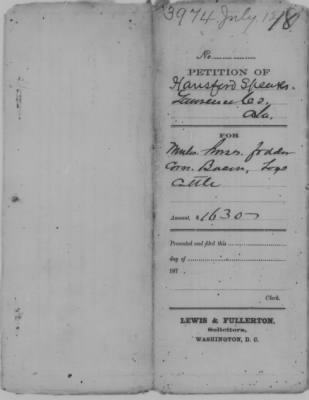 3974 July 12/18
No. ............
PETITION OF
Hansford Speaks.
Lawrence Co.
Ala.
FOR
Mules. horses. fodder
Corn. Bacon, Hogs
Cattle
Amount, $1630
Presented and filed this
day of
187
Clerk.
LEWIS & FULLERTON,
Solicitors,
WASHINGTON, D. C.